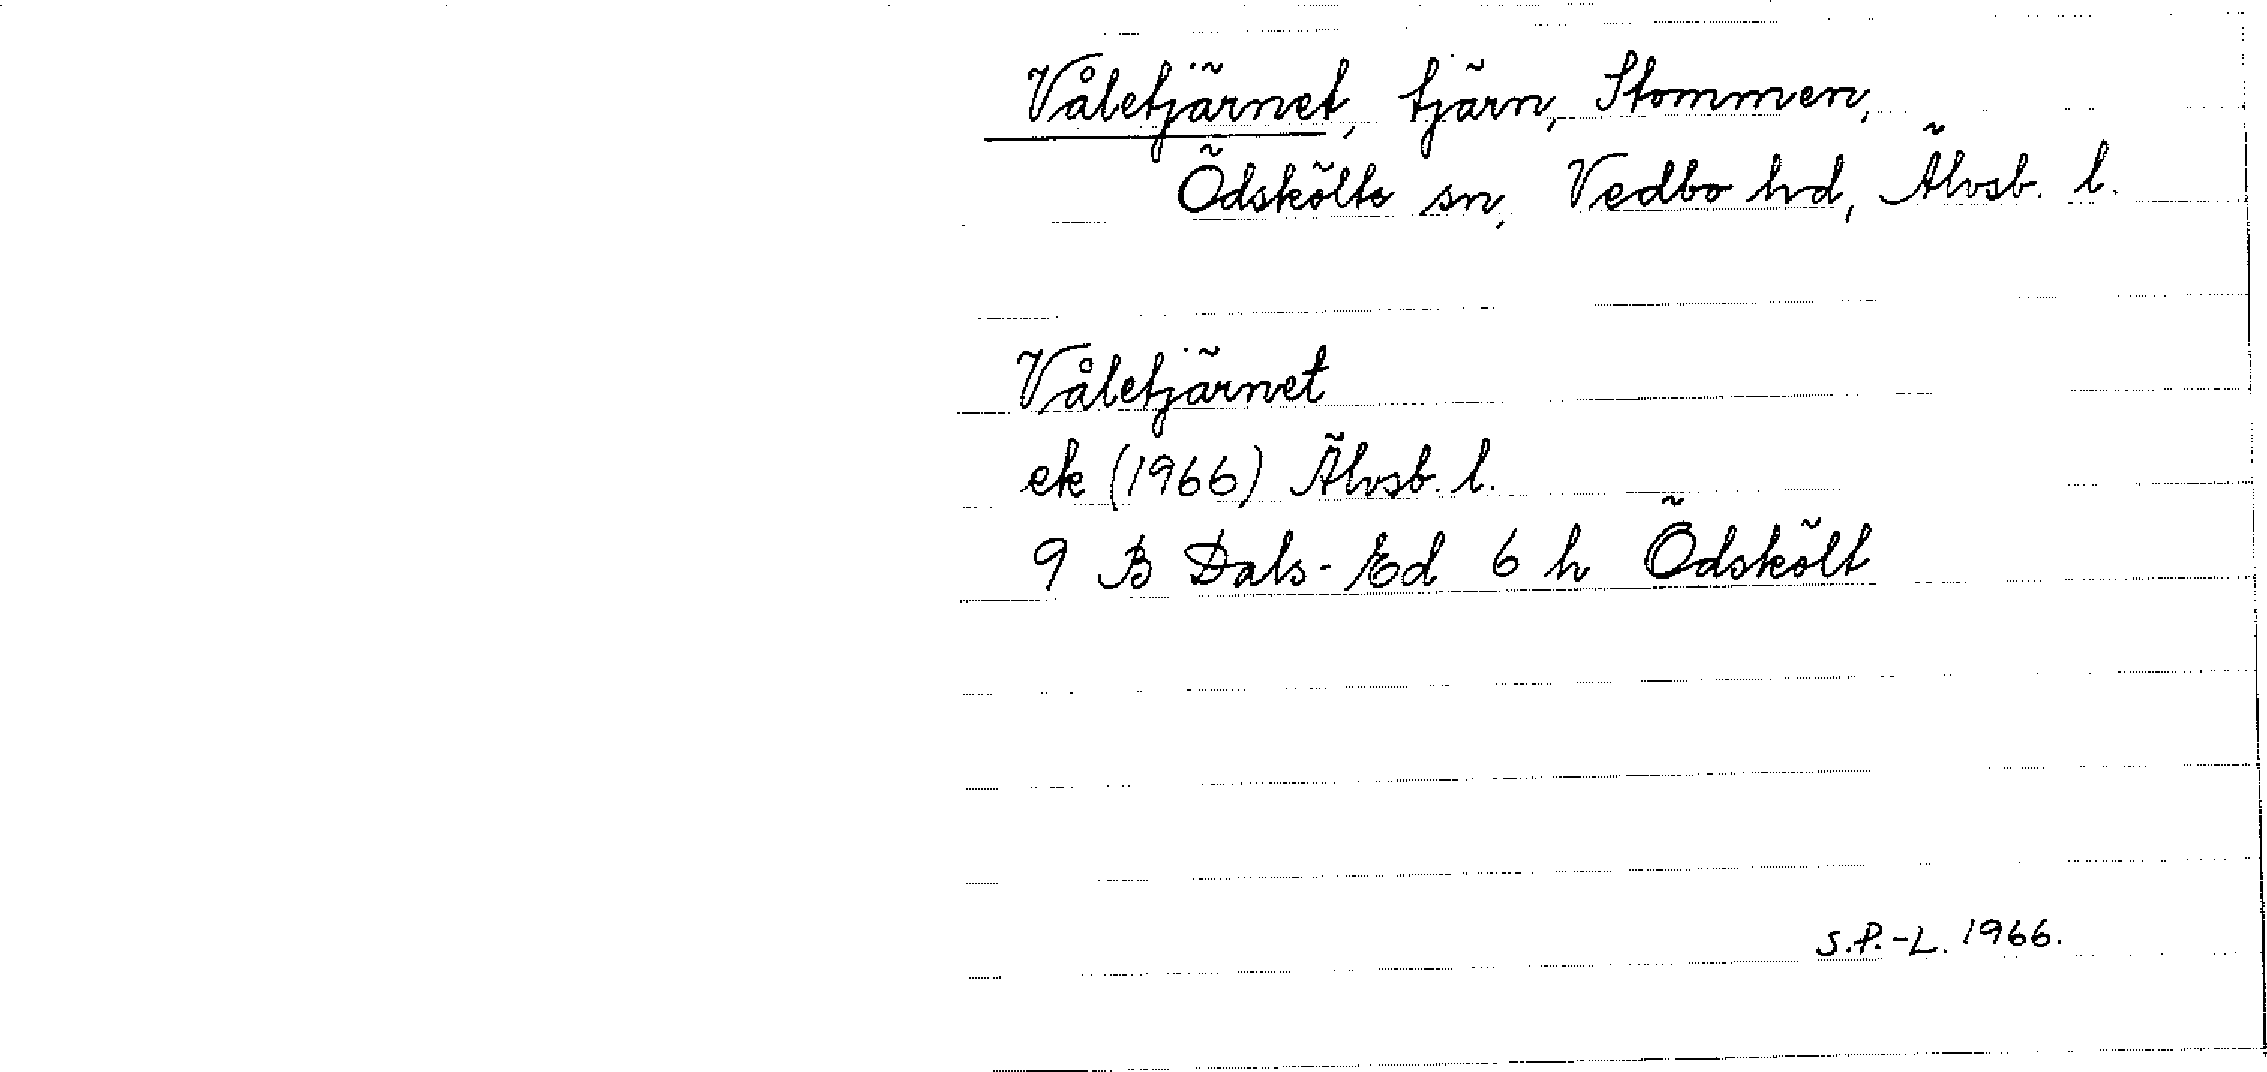 Våletjärnet, tjärn, Stommen,
Ödskölts sn, Vedbo hd, Älvsb. l.
Våletjärnet
ek (1966) Älvsb. l.
9 B Dals-Ed 6 h Ödskölt
S.P.-L. 1966.